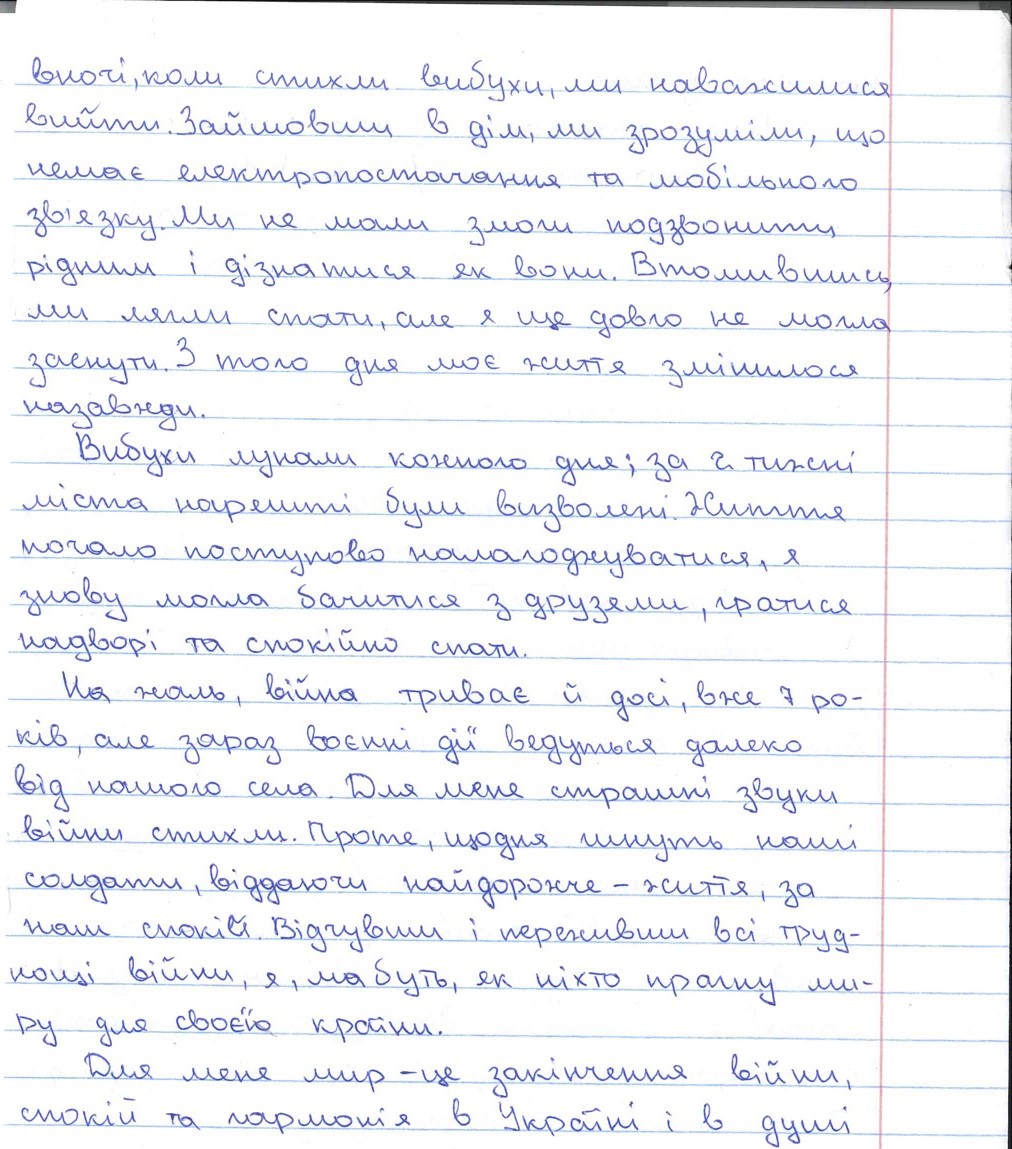 вночі, коли стихли вибухи, ми наважилися
вийти. Зайшовши в дім, ми зрозуміли, що
немає електропостачання та мобільного
зв'язку. Ми не мали змоги подзвонити
рідним і дізнатися як вони. Втомившись,
ми лягли спати, але я ще довго не могла
заснути. З того дня моє життя змінилося
назавжди.
Вибухи лунали кожного дня; за 2 тижні
міста нарешті були визволені. Життя
почало поступово налагоджуватися, я
знову могла бачитися з друзями, гратися
надворі та спокійно спати.
На жаль, війна триває й досі, вже 7 ро-
ків, але зараз воєнні дії ведуться далеко
від нашого села. Для мене страшні звуки
війни стихли. Проте, щодня гинуть наші
солдати, віддаючи найдорожче – життя, за
наш спокій. Відчувши і переживши всі труд-
нощі війни, я, мабуть, як ніхто прагну ми-
ру для своєїо країни.
Для мене мир – це закінчення війни,
спокій та гармонія в Україні і в душі